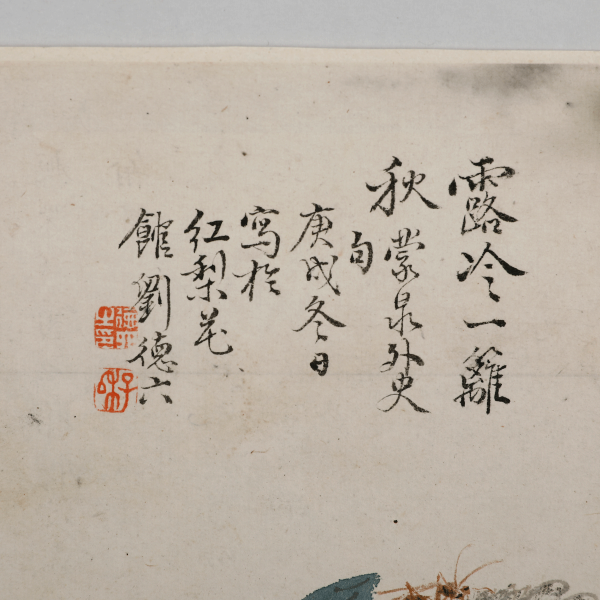 露冷一籬
秋蒙泉外史
句
庚戌冬日
寫於
紅梨花
館劉德六
子和